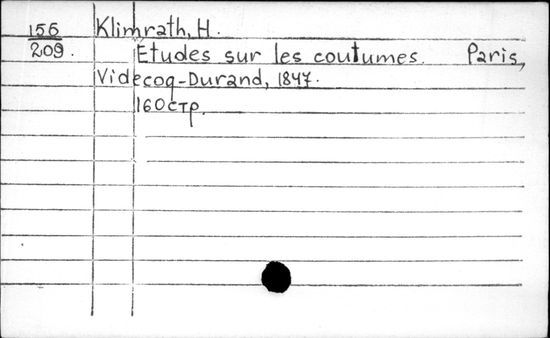 156 Klimrath, H.
209. Etudes sur les coutumes. Paris,
Videcoq-Durand, 1847.
160стр.